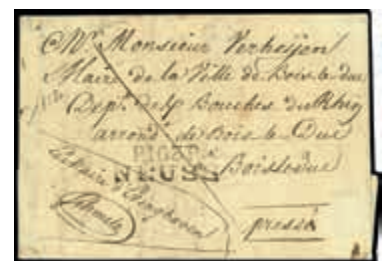 A Mr. Monsieur Verheijen
Maire de la Ville de Bois le duc
Dep.t des Bouches du Rhin
arrond.t de Bois le Duc
P.103.P.
NEUSS
Boisleduc
Le Maire
pressé